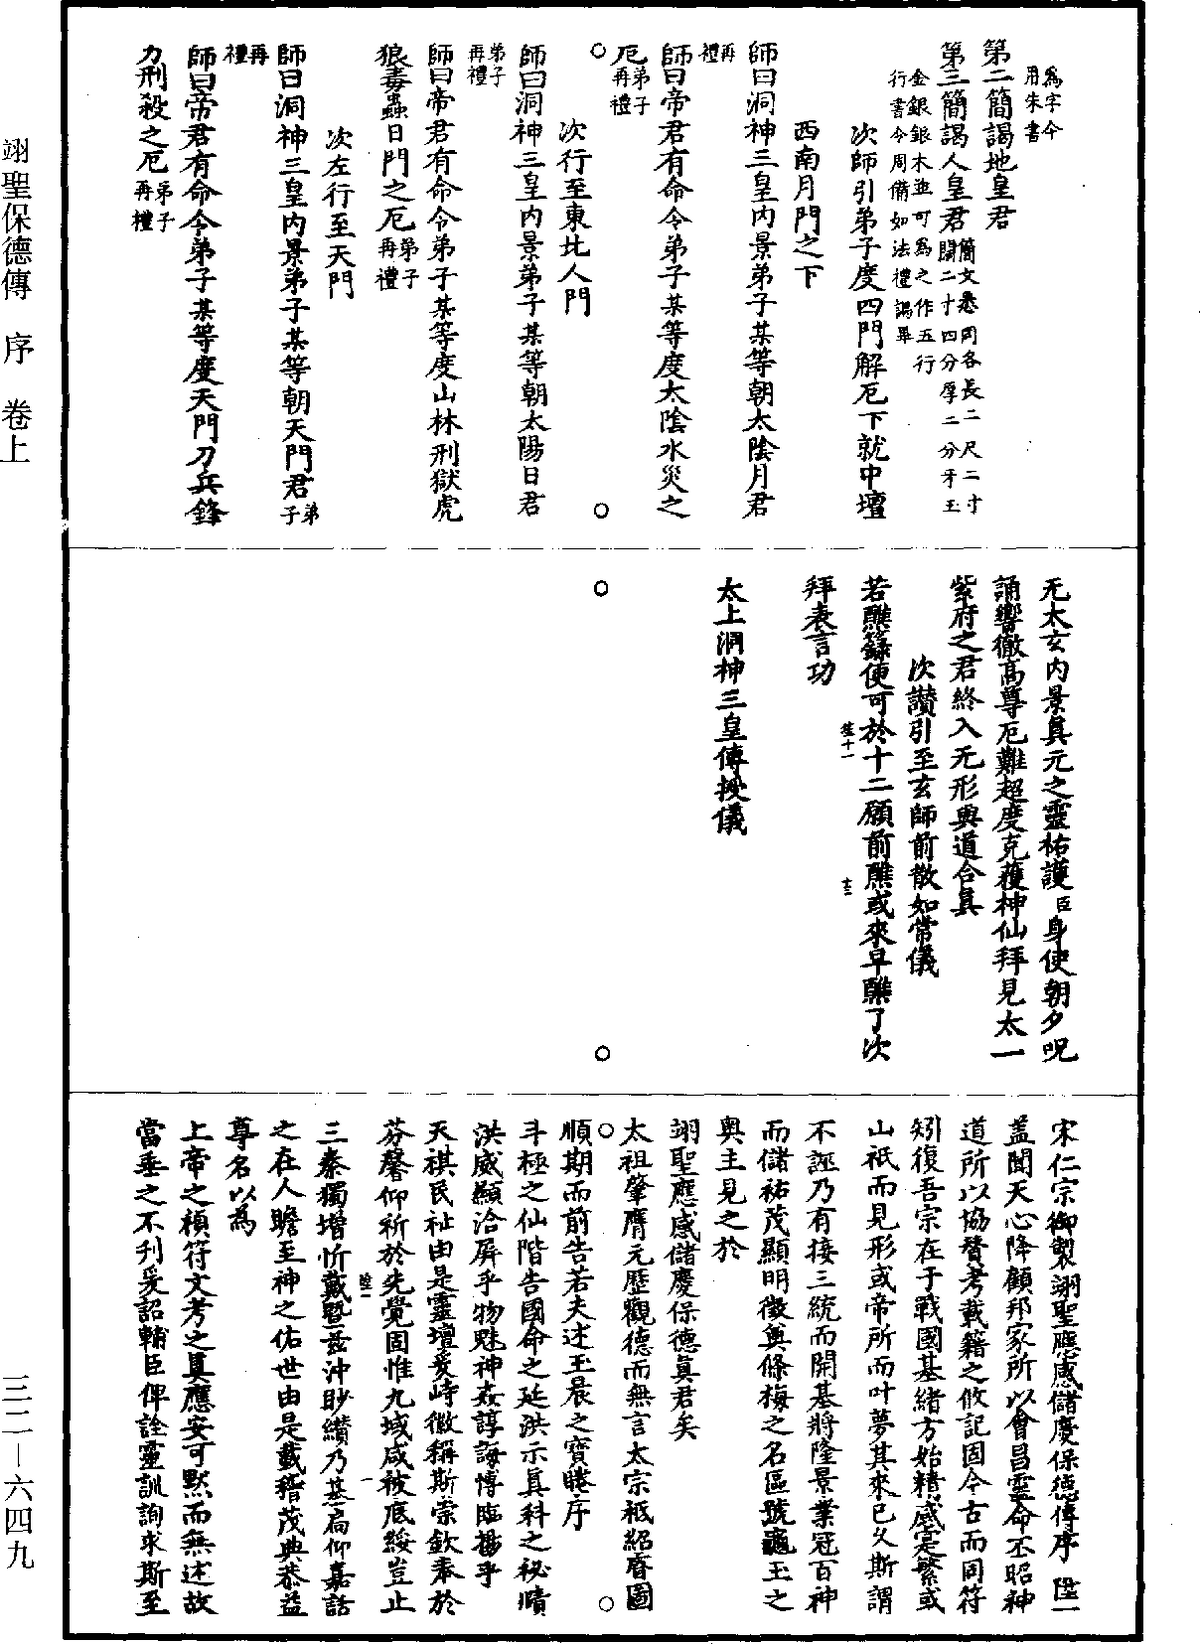 翊聖保德傳　序　卷上
三二—六四九
爲字今
用朱書
第二簡謁地皇君
第三簡謁人皇君簡文悉同各長二尺二寸
闊二寸四分厚二分牙玉
金銀銀木並可爲之作五行
行書今周備如法禮謁畢
次師引弟子度四門解厄下就中壇
西南月門之下
師曰洞神三皇內景弟子某等朝太陰月君
再禮
師曰帝君有命令弟子某等度太陰水災之
厄弟子再禮
次行至東北人門
師曰洞神三皇內景弟子某等朝太陽日君
弟子再禮
師曰帝君有命令弟子某等度山林刑獄虎
狼毒蟲日門之厄弟子再禮
次左行至天門
師曰洞神三皇內景弟子某等朝天門君弟子
再禮
師曰帝君有命令弟子某等度天門刀兵鋒
力刑殺之厄弟子再禮
无太玄內景真元之靈祐護臣身使朝夕呪
誦響徹高尊厄難超度克獲神仙拜見太一
紫府之君終入无形與道合真
次讃引至玄師前散如常儀
若醮籙便可於十二願前醮或來早醮了次
拜表言功
太上洞神三皇傳授儀
宋仁宗御製翊聖應感儲慶保德傳序 陞一
蓋聞天心降顧邦家所以會昌靈命丕昭神
道所以協贊考載籍之攸記固今古而同符
矧復吾宗在于戰國基緒方始精感寔繁或
山祇而見形或帝所而叶夢其來已久斯謂
不誣乃有接三統而開基將隆景業冠百神
而儲祐茂顯明徵奠條梅之名區號龜玉之
奧主見之於
翊聖應感儲慶保德真君矣
太祖肇膺元歷觀德而無言太宗祗紹曆圖
順期而前告若夫述玉晨之寶睠序
斗極之仙階告國命之延洪示真科之秘賾
洪威顯洽屏乎物魅神姦諄誨博臨揚乎
天祺民祉由是靈壇爰峙徽稱斯崇欽奉於
芬馨仰祈於先覺固惟九域咸被底綏豈止
三秦獨增忻戴曁茲沖眇纘乃基扃仰嘉話
之在人瞻至神之佑世由是載稽茂典恭益
尊名以為
上帝之禎符文考之真應安可默而無述故
當垂之不刊爰詔輔臣俾詮靈訓詢求斯至